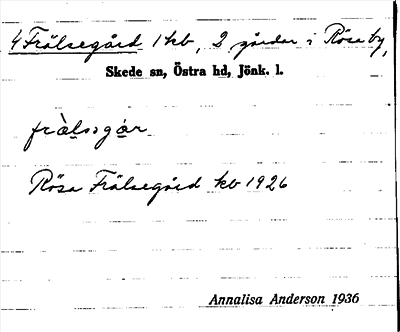 4 Frälsegård 1 kb, 2 gårdar i Rösa by,
Skede sn, Östra hd, Jönk. l.
frȧlsəgȧr
Rösa Frälsegård kb 1926
Annalisa Anderson 1936